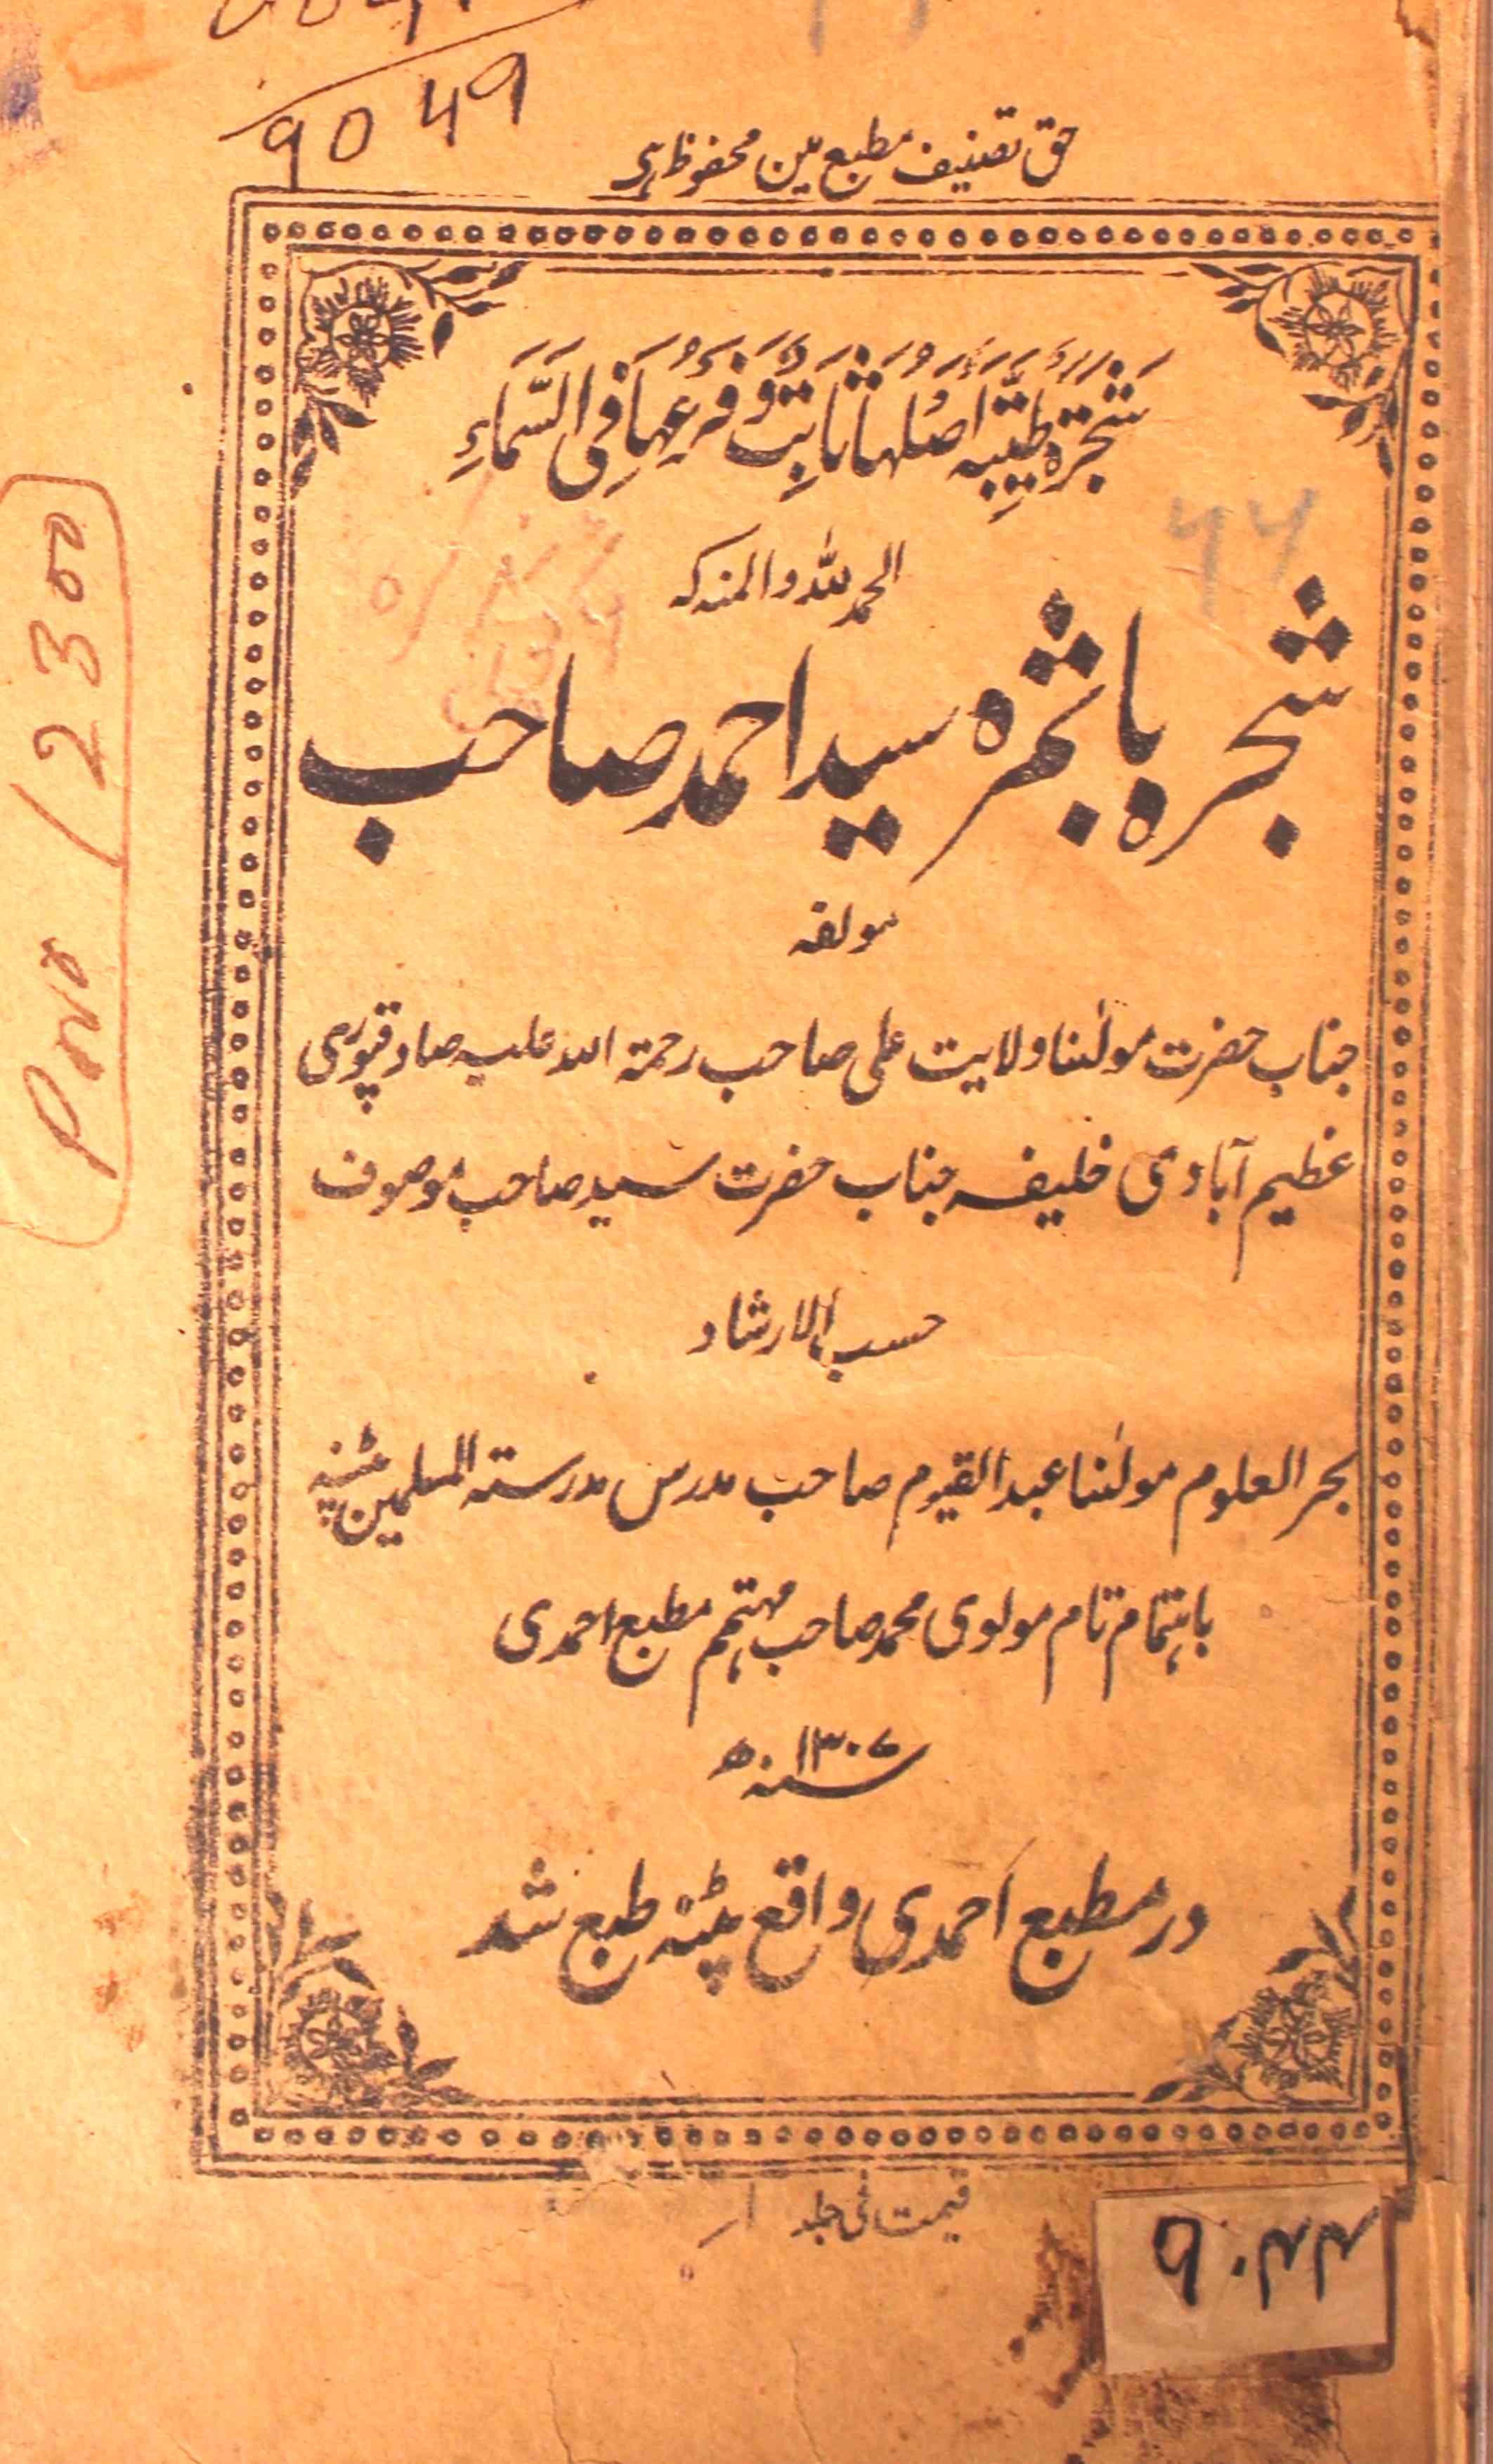 9049
حق تصنیف مطبع مین محفوظ ہی
شَجَرَةٌ طَيِّبَةٌ اَصْلُهَا ثَابِتٌ وَّ فَرْعُهَا فِی السَّمَاءِ
الحمد للہ والمنہ کہ
شجرہ با ثمرہ سید احمد صاحب
مولفہ
جناب حضرت مولٰنا ولایت علی صاحب رحمۃ اللہ علیہ صادقپوری
عظیم آبادی خلیفہ جناب حضرت سید صاحب موصوف
حسب الارشاد
بحر العلوم مولٰنا عبد القیوم صاحب مدرس مدرستہ المسلمین پٹنہ
باہتمام تام مولوی محمد صاحب مہتمم مطبع احمدی
سنہ ۱۳۰۷ ھ
در مطبع احمدی واقع پٹنہ طبع شد
قیمت فی جلد ۱ر